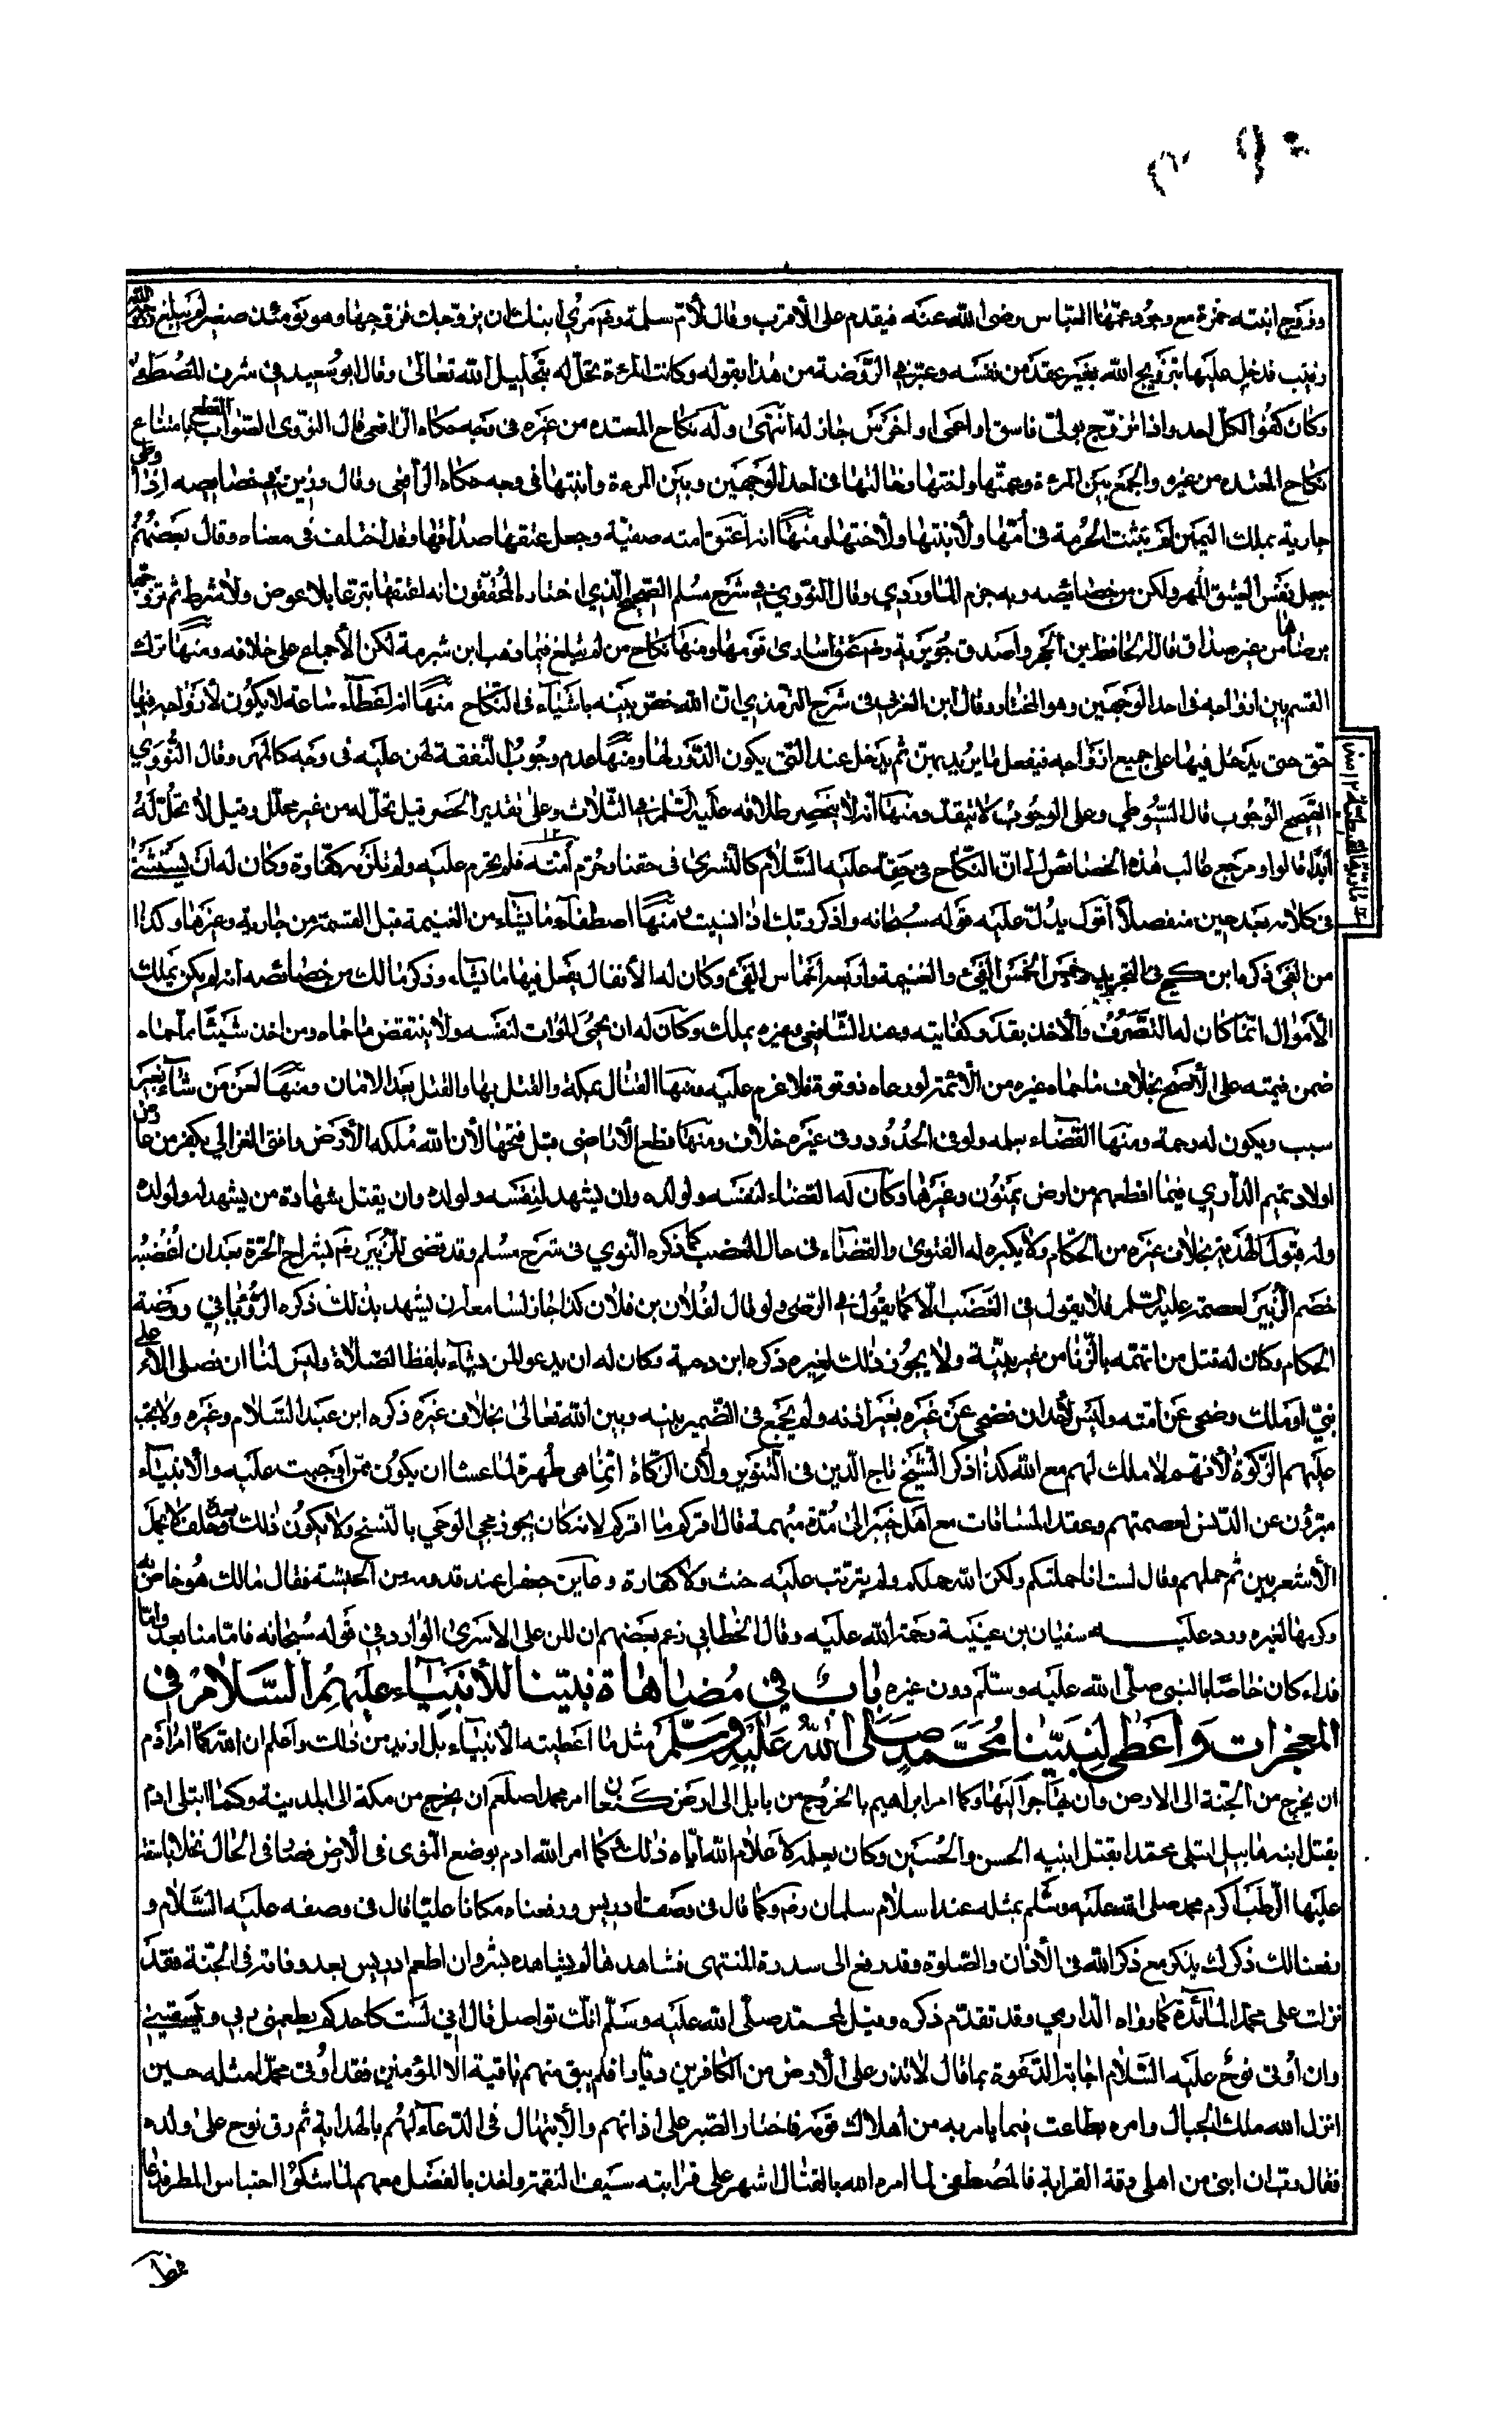 وزوج ابنته حمزة مع وجود عمها العباس رضى الله عنه فيقدم على الأقرب وقال لأم سلمة رضم مري ابنك ان يزوجك فزوجها وهو يومئذ صغير لم يبلغ
زينب فدخل عليها بتزويج الله بغير عقد من نفسه وعبر في الروضة من هذا بقوله وكانت المرءة تحل له بتحليل الله تعالى وقال ابو سعيد في شرف المصطفى
وكان كفوا لكل احد واذا تزوج بولى فاسق او اعمى او اخرس جاز له انتهى وله نكاح المعتده من غيره فى وجه حكاه الرافعى قال النووى الصواب القطع بامتناع
نكاح المعتده من غيره والجمع بين المرءة وعمتها واختها وخالتها فى احد الوجهين وبين المرءة وابنتها فى وجه حكاه الرافعى وقال رزين في خصايصه اذا وطى
جارية بملك اليمين لم يثبت الحرمة فى أمها ولا بنتها ولا اختها ومنها انه أعتق امته صفية وجعل عتقها صداقها وقد اختلف فى معناه وقال بعضهم
يجعل نفس العتق المهر ولكن من خصايصه وبه جزم الماوردي وقال النووي في شرح مسلم الصحيح الذي اختاره المحققون انه اعتقها تبرعا بلا عوض ولا شرط ثم تزوجها
برضاها من غير صداق قال الحافظ بن الحجر واصدق جويرية رضم عتق اسارى قومها ومنها نكاح من لم يبلغ فيما ذهب ابن شبرمة لكن الأجماع على خلافه ومنها ترك
القسم بين ازواجه فى احد الوجهين وهو المختار وقال ابن العربي فى شرح الترمذي ان الله خص نبيه باشياء فى النكاح منها انه اعطاه ساعة لا يكون لأزواجه فيها
حق حتى يدخل فيها على جميع ازواجه فيفعل ما يريد بهن ثم يدخل عند التى يكون الدور لها ومنها عدم وجوب النفقة لهن عليه فى وجه كالمهر وقال النووي
الصحيح الوجوب قال السيوطي وعلى الوجوب لا يتقدر ومنها انه لا ينحصر طلاقه عليه السلم في الثلاث وعلى تقدير الحصر قيل تحل له من غير محلل وقيل لا تحل له
أبدا قالوا ومرجع غالب هذه الخصائص الى انّ النكاح فى حقه عليه السلام كالتسرى فى حقنا وحرم أمته فلم يحرم عليه ولم تلزمه كفارة وكان له ان يستثنى
فى كلامه بعد حين منفصلا أقول يدل عليه قوله سبحانه واذكر ربك اذا نسيت ومنها اصطفاء ما يشاء من الغنيمة قبل القسمة من جارية وغيرها وكذا
من الفئ ذكره ابن كج فى التجريد وخمس الخمس الفئ والغنيمة واربعة اخماس الفئ وكان له الأنفال يفعل فيها ما يشاء وذكر مالك من خصايصه انه لم يكن يملك
الأموال انما كان له التصرف والأخذ بقدر كفايته وعند الشافعى وغيره يملك وكان له ان يحمى الموات لنفسه ولا ينتقض ما حماه ومن اخذ شيئا مما حماه
ضمن قيمته على الأصح بخلاف ما حماه غيره من الأئمة لو رعاه ذو قوة فلا غرم عليه ومنها القتال بمكة والقتل بها والقتل بعد الامان ومنها لعن من شاء بغير
سبب ويكون له رحمة ومنها القضاء بعلمه ولو فى الحدود وفى غيره خلاف ومنها قطع الاراضى قبل فتحها لأن الله ملكه الأرض وافتى الغزالي بكفر من عارض
اولاد تميم الداري فيما اقطعهم من ارض بيمنون وغيرها وكان له القضاء لنفسه ولولده وان يشهد لنفسه ولولده وان يقبل شهادة من يشهد له ولولده
وله قبول الهدية بخلاف غيره من الحكام ولا يكره له الفتوى والقضاء فى حال الغضب كما ذكره النووي فى شرح مسلم وقد قضى للزبير رضم بشراج الحرة بعد ان اغضبه
خصم الزبير لعصمته عليه السلم فلا يقول فى الغضب الا كما يقول في الرضى ولو قال لفلان بن فلان كذا جاز لسامعه ان يشهد بذلك ذكره الرويانى روضة
الحكام وكان له قتل من اتهمه بالزنا من غير بينة ولا يجوز ذلك لغيره ذكره ابن دحية وكان له ان يدعو لمن يشاء بلفظ الصلاة وليس لنا ان نصلى الا على
نبى او ملك وضحى عن امته وليس لأحد ان يضحى عن غيره بغير اذنه وله يجمع فى الضمير بينه وبين الله تعالى بخلاف غيره ذكره ابن عبد السلام وغيره ولا يجب
عليهم الزكوة لأنهم لا ملك لهم مع الله كذا ذكر الشيخ تاج الدين فى التنوير ولأن الزكاة انما هى طهرة لما عساه ان يكون ممن اوجبت عليه والأنبياء
مبرؤن عن الدنس لعصمتهم وعقد المساقات مع اهل خيبر الى مدة مبهمة قال اقركم ما اقركم لانه كان يجوز مجئ الوحى بالنسخ ولا يكون ذلك بعده وحلف لا يحمل
الأشعريين ثم حملهم وقال لست انا حملتكم ولكن الله حملكم ولم يترتب عليه حنث ولا كفارة وعاين جعفرا عند قدومه من الحبشة فقال مالك هو خاص به
وكرهها لغيره ورد عليه سفيان بن عيينة رحمة الله عليه وقال الخطابي زعم بعضهم ان المن على الاسرى الوارد في قوله سبحانه فامّا منا بعد وامّا
فداء كان خاصا بالنبى صلى الله عليه وسلم دون غيره باب في مضاهاة نبينا للأنبياء عليهم السلام في
المعجزات وأعطى لنبينا محمد صلى الله عليه وسلم مثل ما اعطيته الأنبياء بل ازيد من ذلك واعلم ان الله كما امر ادم
ان يخرج من الجنة الى الارض وأن يهاجر اليها وكما امر ابراهيم بالخروج من بابل الى ارض كنعان امر محمد اصلعم ان يخرج من مكة الى المدينة وكما ابتلى ادم
بقتل ابنه هابيل ابتلى محمدا بقتل ابنيه الحسن والحسين وكان يعلمه لأعلام الله اياه ذلك كما امر الله ادم بوضع النوى فى الأرض فصار فى الحال نخلا باسقة
عليها الرطب أكرم محمد صلى الله عليه وسلم بمثله عند اسلام سلمان رضم وكما قال فى وصف ادريس ورفعناه مكانا عليّا قال فى وصفه عليه السلام و
رفعنا لك ذكرك يذكر مع ذكر الله فى الأذان والصلوة وقد رفع الى سدرة المنتهى فشاهد ما لم يشاهده بشر وان اطعم ادريس بعد وفاته فى الجنة فقد
نزلت على محمد المائدة كما رواه الدارمي وقد تقدم ذكره وقيل لمحمد صلى الله عليه وسلم انك تواصل قال اني لست كاحدكم يطعمنى ربى ويسقينى
وان أوتى نوح عليه السلام اجابة الدعوة بما قال لا تذر على الأرض من الكافرين ديارا فلم يبق منهم باقية الا المؤمنين فقد أوتى محمد امثله حين
انزل الله ملك الجبال وامره بطاعته فيما يامر به من أهلاك قومه فاختار الصبر على اذائهم والأبتهال فى الدعاء لهم بالهداية ثم رق نوح على ولده
فقال رب ان ابنى من اهلى رقة القرابة فالمصطفى لما امره الله بالقتال اشهر على قرابته سيف النقمة واخذ بالفضل معهم لما شكوا احتباس المطر فدعا